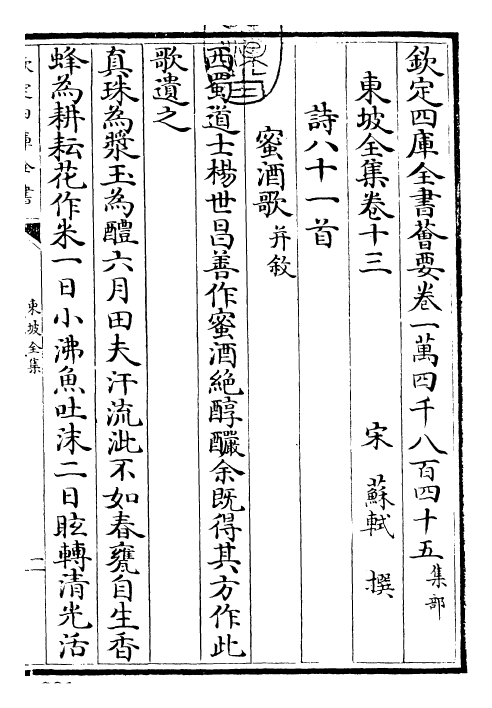 欽定四庫全書薈要卷一萬四千八百四十五 集部
東坡全集卷十三
宋 蘇軾 撰
詩八十一首
蜜酒歌 并敘
西蜀道士楊世昌善作蜜酒絶醇釅余既得其方作此
歌遺之
真珠為漿玉為醴六月田夫汗流泚不如春甕自生香
蜂為耕耘花作米一日小沸魚吐沫二日眩轉清光活
欽定四庫全書
東坡全集